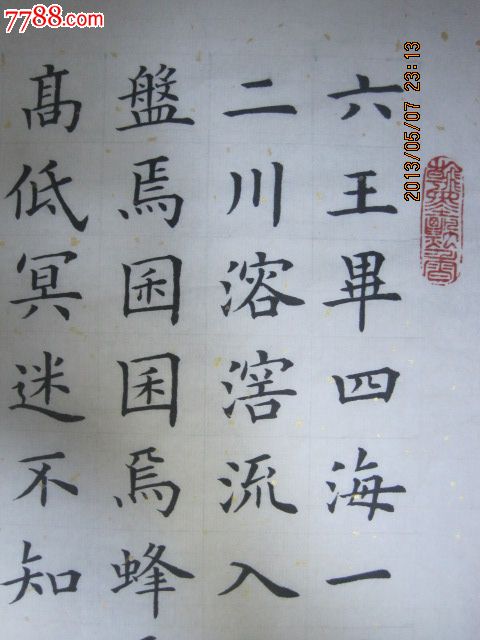 7788.com
中国收藏热线
2013/05/07 23:13
六王畢四海一
二川溶流入
盤焉囷囷焉蜂
髙低冥迷不知